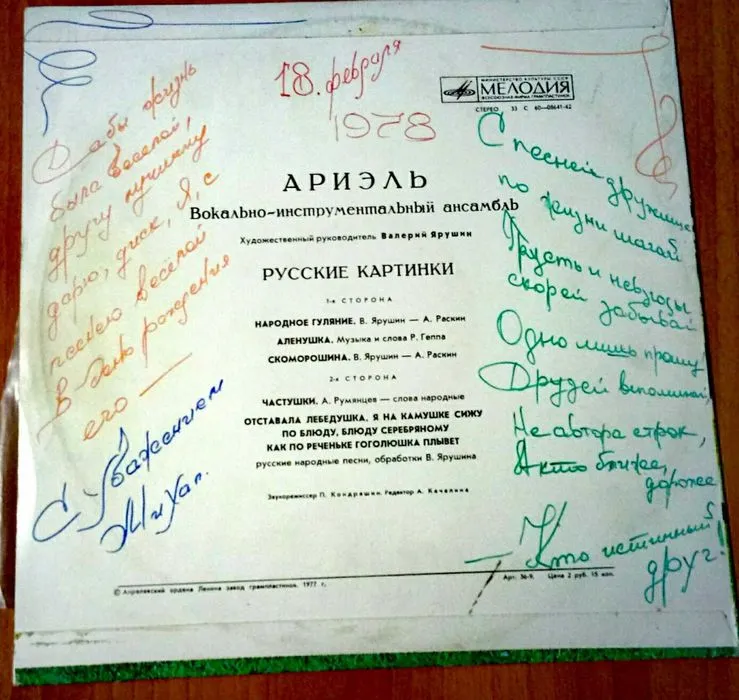 18. февраля
1978
МИНИСТЕРСТВО КУЛЬТУРЫ СССР
МЕЛОДИЯ
ВСЕСОЮЗНАЯ ФИРМА ГРАМПЛАСТИНОК
СТЕРЕО 33 С 60—08641-42
АРИЭЛЬ
Вокально-инструментальный ансамбль
Художественный руководитель Валерий Ярушин
РУССКИЕ КАРТИНКИ
1-я СТОРОНА
НАРОДНОЕ ГУЛЯНИЕ. В. Ярушин — А. Раскин
АЛЕНУШКА. Музыка и слова Р. Геппа
СКОМОРОШИНА. В. Ярушин — А. Раскин
2-я СТОРОНА
ЧАСТУШКИ. А. Румянцев — слова народные
ОТСТАВАЛА ЛЕБЕДУШКА. Я НА КАМУШКЕ СИЖУ
ПО БЛЮДУ, БЛЮДУ СЕРЕБРЯНОМУ
КАК ПО РЕЧЕНЬКЕ ГОГОЛЮШКА ПЛЫВЕТ
русские народные песни, обработки В. Ярушина
Звукорежиссер П. Кондрашин. Редактор А. Качалина
© Апрелевский ордена Ленина завод грампластинок. 1977 г.
Арт. 36-9. Цена 2 руб. 15 коп.
Дабы жизнь
была веселой,
другу лучшему
дарю, диск, Я, с
песнею весёлой
В день рождения
его —
С Уважением
Михал.
С песней дружище
по жизни шагай
Грусть и невзгоды
скорей забывай
Одно лишь прошу
Друзей вспоминай,
Не автора строк,
А кто ближе,
дороже
— Кто истинный
друг!